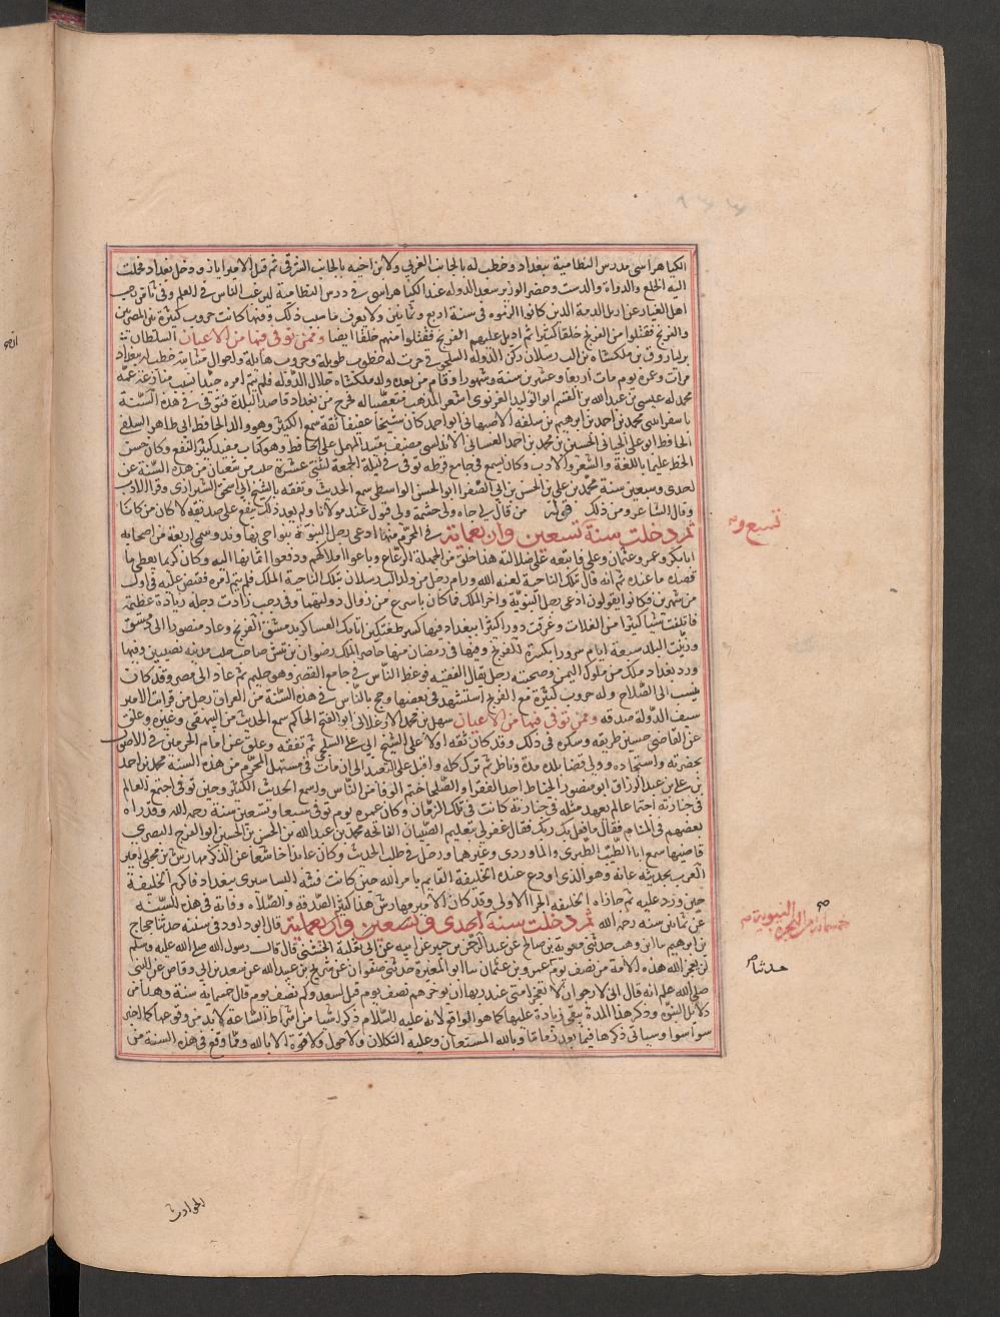 الكيا هراسي مدرس النظامية ببغداد وخطب له بالجانب الغربي ولابن اخيه بالجانب الشرقي ثم قتل الامير اياز ودخل بغداد فحملت
اليه الخلع والدواة والدست وحضر الوزير سعد الدولة عند الكيا هراسي في درس النظامية ليرغب الناس في العلم وفي ثامن رجب
اهل الغيار عن اهل الذمة الذين كانوا الزموه في سنة اربع وثمانين ولا يعرف ما سبب ذلك وفيها كانت حروب كثيرة بين المصريين
والفرنج فقتلوا من الفرنج خلقا كثيرا ثم اديل عليهم الفرنج فقتلوا منهم خلقا ايضا وممن توفي فيها من الاعيان السلطان
بركياروق بن ملكشاه بن الب رسلان ركن الدولة السلجوقي جرت له خطوب طويلة وحروب هايلة واحوال متباينة خطب له ببغداد
مرات وعمره يوم مات اربعا وعشرين سنة وشهورا وقام من بعده ولده ملكشاه جلال الدولة فلم يتم امره جيدا بسبب منازعة عمه
محمد له عيسى بن عبد الله بن القسم ابو الوليد الغزنوي اشعري المذهب متعصبا له خرج من بغداد قاصدا البلدة فتوفي في هذه السنة
باسفراين محمد بن احمد بن ابرهيم بن سلفة الاصبهاني ابو احمد كان شيخا عفيفا ثقة سمع الكثير وهو والد الحافظ ابي طاهر السلفي
الحافظ ابو علي الجياني الحسين بن محمد بن احمد الغساني الاندلسي مصنف تقييد المهمل على الحافظ وهو كتاب مفيد كثير النفع وكان حسن
الخط عليما باللغة والشعر والادب وكان يسمع في جامع قرطبة توفي في ليلة الجمعة لثنتي عشرة خلت من شعبان من هذه السنة عن
احدى وسبعين سنة محمد بن علي بن الحسن بن ابي الصقر ابو الحسن الواسطي سمع الحديث وتفقه بالشيخ ابي اسحق الشيرازي وقرا الادب
وقال الشاعر ومن ذلك قوله من قال لي جاه ولي حشمة ولي قبول عند مولانا ولم يعد ذلك بنفع على صديقه لا كان من كانا
ثم دخلت سنة تسعين واربعماية في المحرم منها ادعى رجل النبوة بنواحي نهاوند وسمى اربعة من اصحابه
ابا بكر وعمر وعثمان وعلي فاتبعه على ضلالته هذا خلق من الجهلة الرعاع وباعوا املاكهم ودفعوا اثمانها اليه وكان كريما يعطي من
قصده ما عنده ثم انه قتل بتلك الناحية لعنه الله ورام رجل من ولد الب رسلان بتلك الناحية الملك فلم يتم امره فقبض عليه في اقل
من شهرين فكانوا يقولون ادعى رجل النبوة واخر الملك فما كان باسرع من زوال دولتيهما وفي رجب زادت دجلة زيادة عظيمة
فاتلفت شيا كثيرا من الغلات وغرقت دورا كثيرا ببغداد وفيها كسر طغتكين اتابك العساكر بدمشق الفرنج وعاد منصورا الى دمشق
وزينت البلد سبعة ايام سرورا بكسره للفرنج وفيها في رمضان منها حاصر الملك رضوان بن تتش صاحب حلب مدينة نصيبين وفيها
ورد بغداد ملك من ملوك اليمن وصحبته رجل يقال الفقيه فوعظ الناس في جامع القصر وهو حليم ثم عاد الى مصر وقد كان
ينسب الى الصلاح وله حروب كثيرة مع الفرنج استشهد في بعضها وحج بالناس في هذه السنة من العراق رجل من قرابات الامير
سيف الدولة صدقة وممن توفي فيها من الاعيان سهل بن محمد الارغلاني ابو الفتح الحاكم سمع الحديث من البيهقي وغيره وعلق
عن القاضي حسين طريقه وشكره في ذلك وقد كان تفقه اولا على الشيخ ابي علي السنجي ثم تفقه وعلق عن امام الحرمين في الاصول
بحضرته واستجاده وولي قضا بلده مدة وناظر ثم ترك كله واقبل على التعبد الى ان مات في مستهل المحرم من هذه السنة محمد بن احمد
بن علي بن عبد الرزاق ابو منصور الخياط احد الفقرا والصلحا ختم الوفا من الناس واسمع الحديث الكثير وحين توفي اجتمع العالم
في جنازته اجتماعا لم يعهد مثله في جنازته كانت في تلك الزمان وكان عمره يوم توفي سبعا وتسعين سنة رحمه الله وقد راه
بعضهم في المنام فقال ما فعل بك ربك فقال غفر لي بتعليم الصبيان الفاتحة محمد بن عبد الله بن الحسن بن الحسين ابو الفرج البصري
قاضيها سمع ابا الطيب الطبري والماوردي وغيرهما ورحل في طلب الحديث وكان عابدا خاشعا عن الذكر مهارش بن مجلي امير
العرب بحديثة عانة وهو الذي اودع عنده الخليفة القايم بامر الله حين كانت فتنة البساسيري ببغداد فاكرم الخليفة
حين ورد عليه ثم جازاه الخليفة الجزا الاوفى وقد كان الامير مهارش هذا كثير الصدقة والصلاة وفاته في هذه السنة
عن ثمانين سنة رحمه الله ثم دخلت سنة احدى وتسعين واربعماية قال ابو داود في سننه حدثنا حجاج
بن ابرهيم ثنا ابن وهب حدثني معوية بن صالح عن عبد الرحمن بن جبير عن ابيه عن ابي ثعلبة الخشني قال قال رسول الله صلى الله عليه وسلم
لن يعجز الله هذه الامة من نصف يوم عمرو بن عثمان ثنا ابو المغيرة حدثني صفوان عن شريح بن عبيد الله عن سعد بن ابي وقاص عن النبي
صلى الله عليه انه قال اني لارجو ان لا تعجز امتي عند ربها ان يوخرهم نصف يوم قيل لسعد وكم نصف يوم قال خمسماية سنة وهذا من
دلايل النبوة وذكر هذا المدة ينفي زيادة عليها كما هو الواقع لانه عليه السلام ذكر اشيا من اشراط الساعة لا بد من وقوعها كما اخبر
سوا سوا وسياتي ذكرها فيما بعد زماننا وبالله المستعان وعليه التكلان ولا حول ولا قوة الا بالله ومما وقع في هذه السنة من
تسع و
خمسماية من الهجرة النبوية
حدثنا
الحوادث